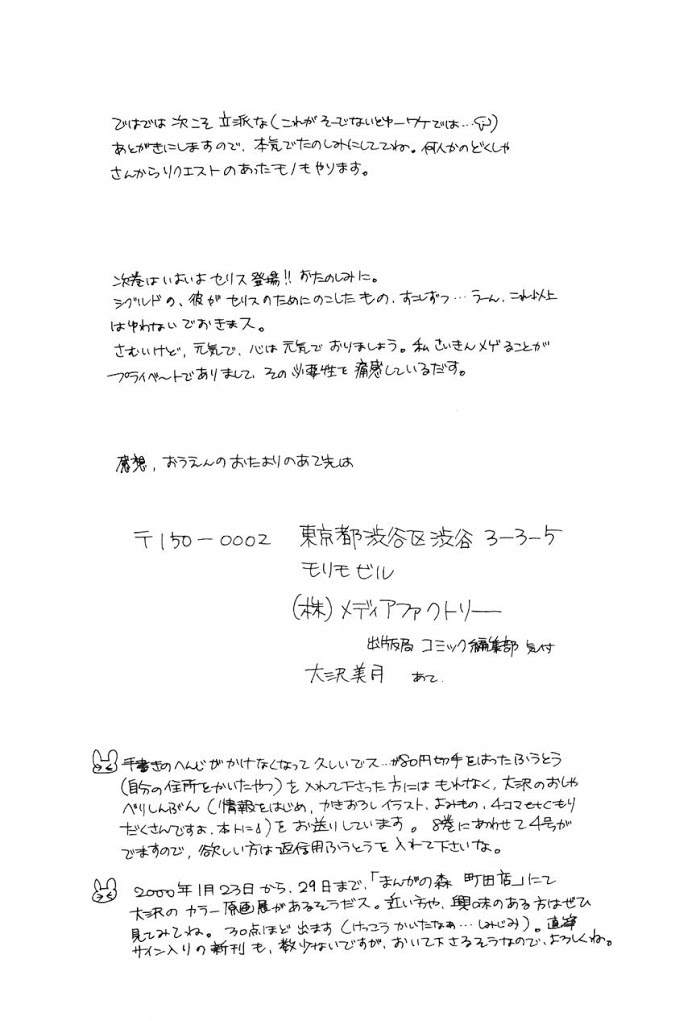 ではでは次こそ立派な(これがそーでないとゆーワケでは…)
あとがきにしますので、本気でたのしみにしててね。何人かのどくしゃ
さんからリクエストのあったモノもやります。
次巻はいよいよセリス登場!!おたのしみに。
シグルドの、彼がセリスのためにのこしたもの、すこしずつ…うーん、これ以上
はゆわないでおきまス。
さむいけど、元気で、心は元気でおりましょう。私さいきんメゲることが
プライベートでありまして、その必要性を痛感しているだす。
感想,おうえんのおたよりのあて先は
〒150-0002 東京都渋谷区渋谷3-3-5
モリモビル
(株)メディアファクトリー
出版局 コミック編集部 気付
大沢美月 あて.
手書きのへんじがかけなくなって久しいでス…が80円切手をはったふうとう
(自分の住所をかいたやつ)を入れて下さった方にはもれなく、大沢のおしゃ
べりしんぶん(情報をはじめ、かきおろしイラスト、よみもの、4コマetcもり
だくさんですよ、本トに)をお送りしています。8巻にあわせて4号が
でますので、欲しい方は返信用ふうとうを入れて下さいな。
2000年1月23日から、29日まで、「まんがの森 町田店」にて
大沢のカラー原画展があるそうだス。近い方や、興味のある方はぜひ
見てみてね。30点ほど出ます(けっこうかいたなぁ…しみじみ)。直筆
サイン入りの新刊も、数少ないですが、おいて下さるそうなので、よろしくね。